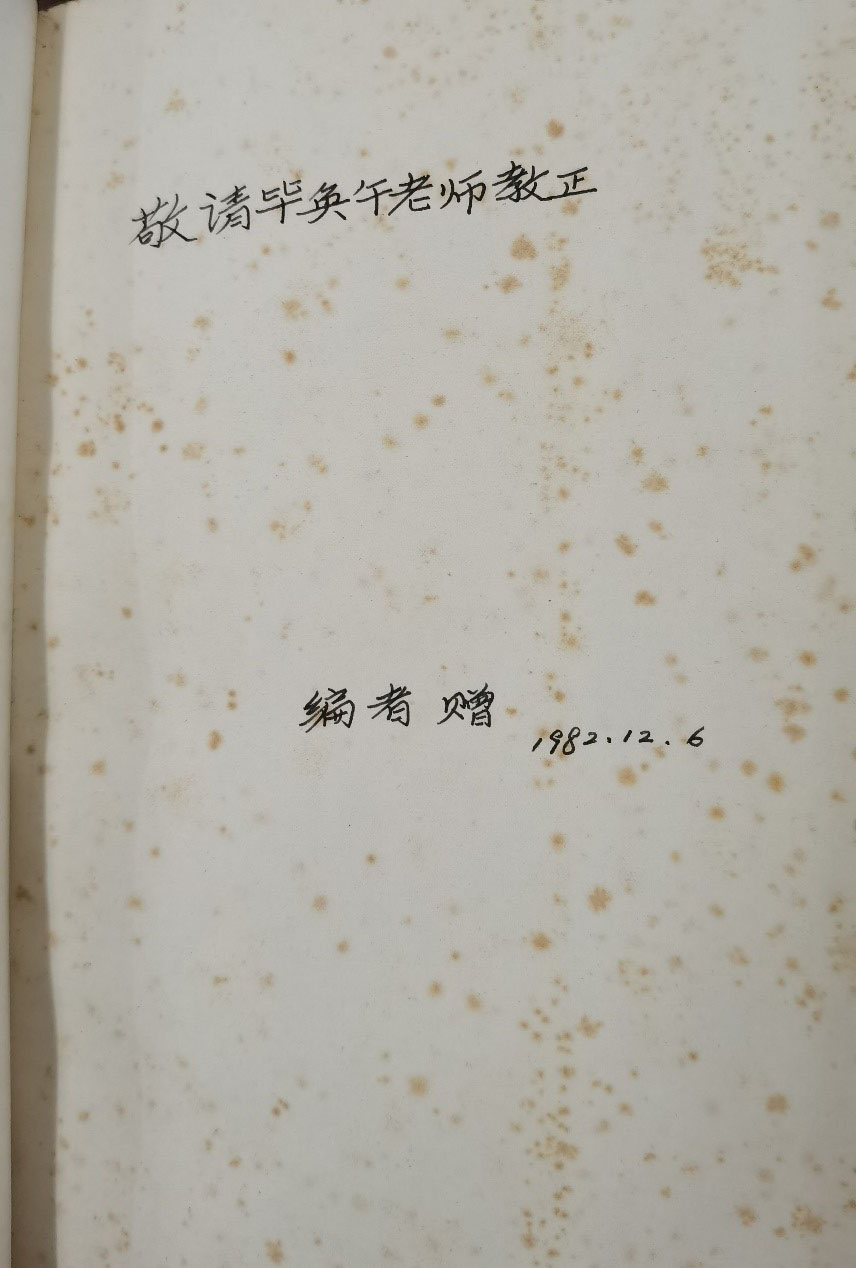 敬请毕奂午老师教正
编者 赠
1982.12.6